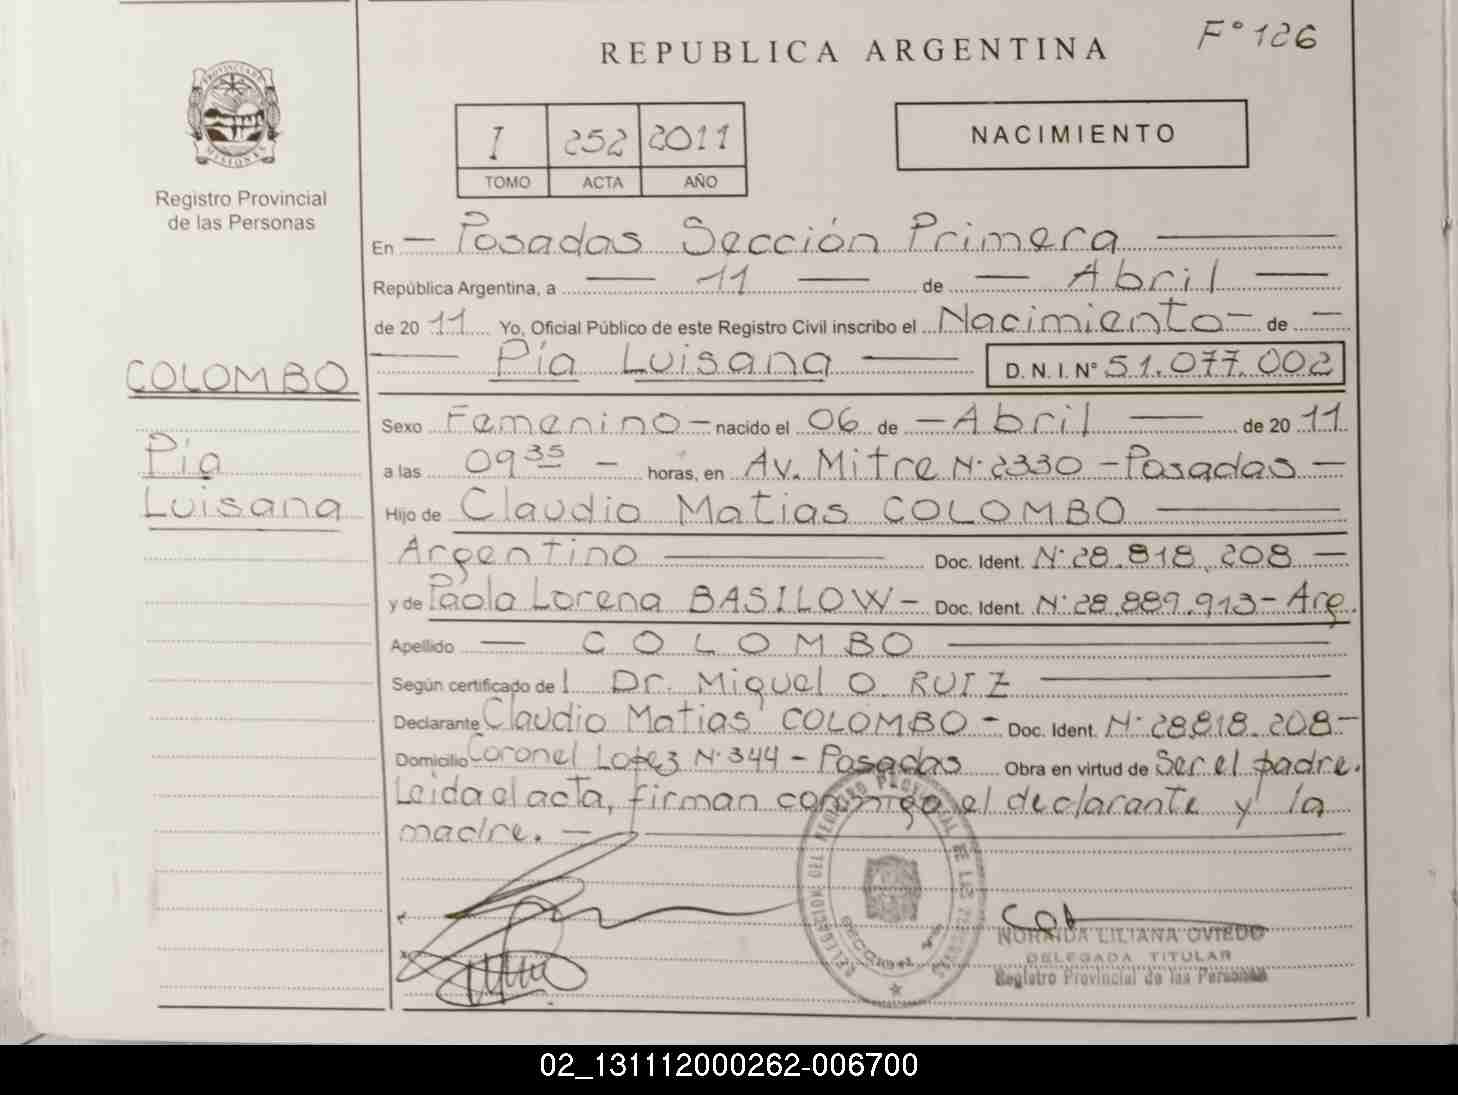 REPUBLICA ARGENTINA
F° 126
PROVINCIA DE
MISIONES
Registro Provincial
de las Personas
I 252 2011
TOMO ACTA AÑO
NACIMIENTO
En — Posadas Sección Primera —
República Argentina, a — 11 — de — Abril —
de 2011 Yo, Oficial Público de este Registro Civil inscribo el Nacimiento — de —
— Pía Luisana — D. N. I. Nº 51.077.002
COLOMBO
Pía
Luisana
Sexo Femenino — nacido el 06 de — Abril — de 2011
a las 09 35 — horas, en Av. Mitre Nº 2330 — Posadas —
Hijo de Claudio Matias COLOMBO —
Argentino — Doc. Ident. Nº 28.818.208 —
y de Paola Lorena BASILOW — Doc. Ident. Nº 28.889.913 — Arg.
Apellido — COLOMBO —
Según certificado del Dr. Miguel O. RUIZ —
Declarante Claudio Matias COLOMBO — Doc. Ident. Nº 28.818.208 —
Domicilio Coronel Lopez Nº 344 — Posadas Obra en virtud de Ser el padre.
Leida el acta, firman conmigo el declarante y la
madre. —
DELEGACION DEL REGISTRO PROVINCIAL DE LAS PERSONAS
NORAIDA LILIANA OVIEDO
DELEGADA TITULAR
Registro Provincial de las Personas
02_131112000262-006700